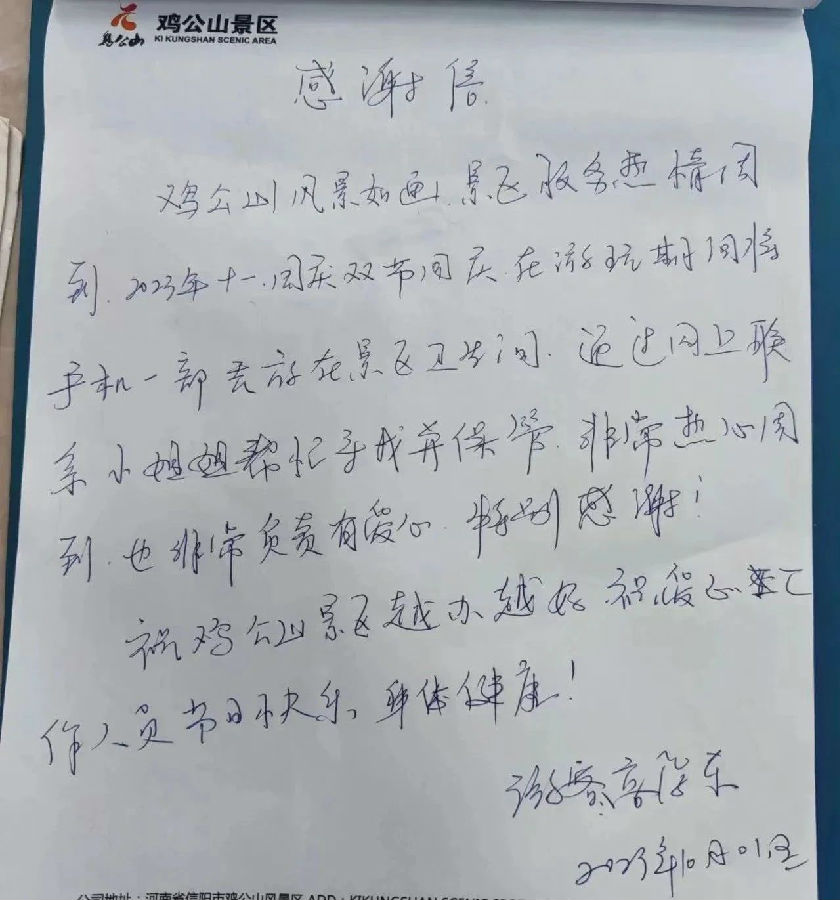 鸡公山
鸡公山景区
KI KUNGSHAN SCENIC AREA
感谢信
鸡公山风景如画,景区服务热情周
到.2023年十一.国庆双节同庆.在游玩期间将
手机一部丢放在景区卫生间.通过网上联
系小姐姐帮忙寻找并保管.非常热心周
到.也非常负责有爱心.特别感谢!
祝鸡公山景区越办越好.祝爱心工
作人员节日快乐,身体健康!
游客高
2023年10月01日
公司地址:河南省信阳市鸡公山风景区 ADD:KIKUNGSHAN SCENIC AREA